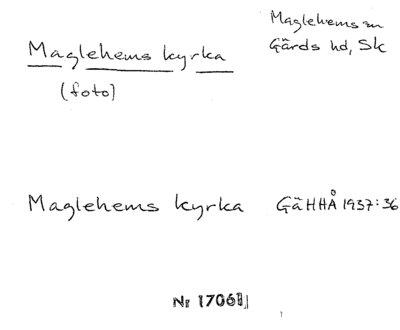 Maglehems sn
Gärds hd, Sk
Maglehems kyrka
(foto)
Maglehems kyrka GäHHÅ 1937:36
Nr 17061